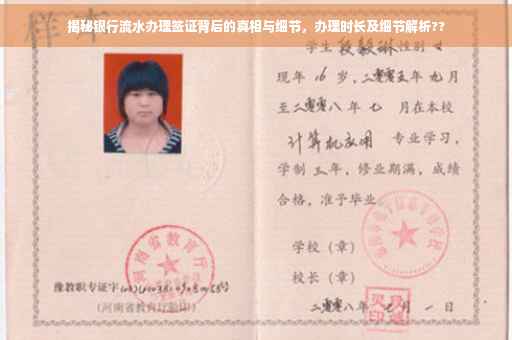 揭秘银行流水办理签证背后的真相与细节，办理时长及细节解析??
样本
学生段毅琳性别女
现年 16 岁，二零零五年 九月
至二零零八年 七 月在本校
计算机应用 专业学习，
学制 三 年，修业期满，成绩
合格，准予毕业
学校（章）
校长（章）
二零零八年 月 一 日
河南省教育厅
豫教职专证字
（河南省教育厅验印）